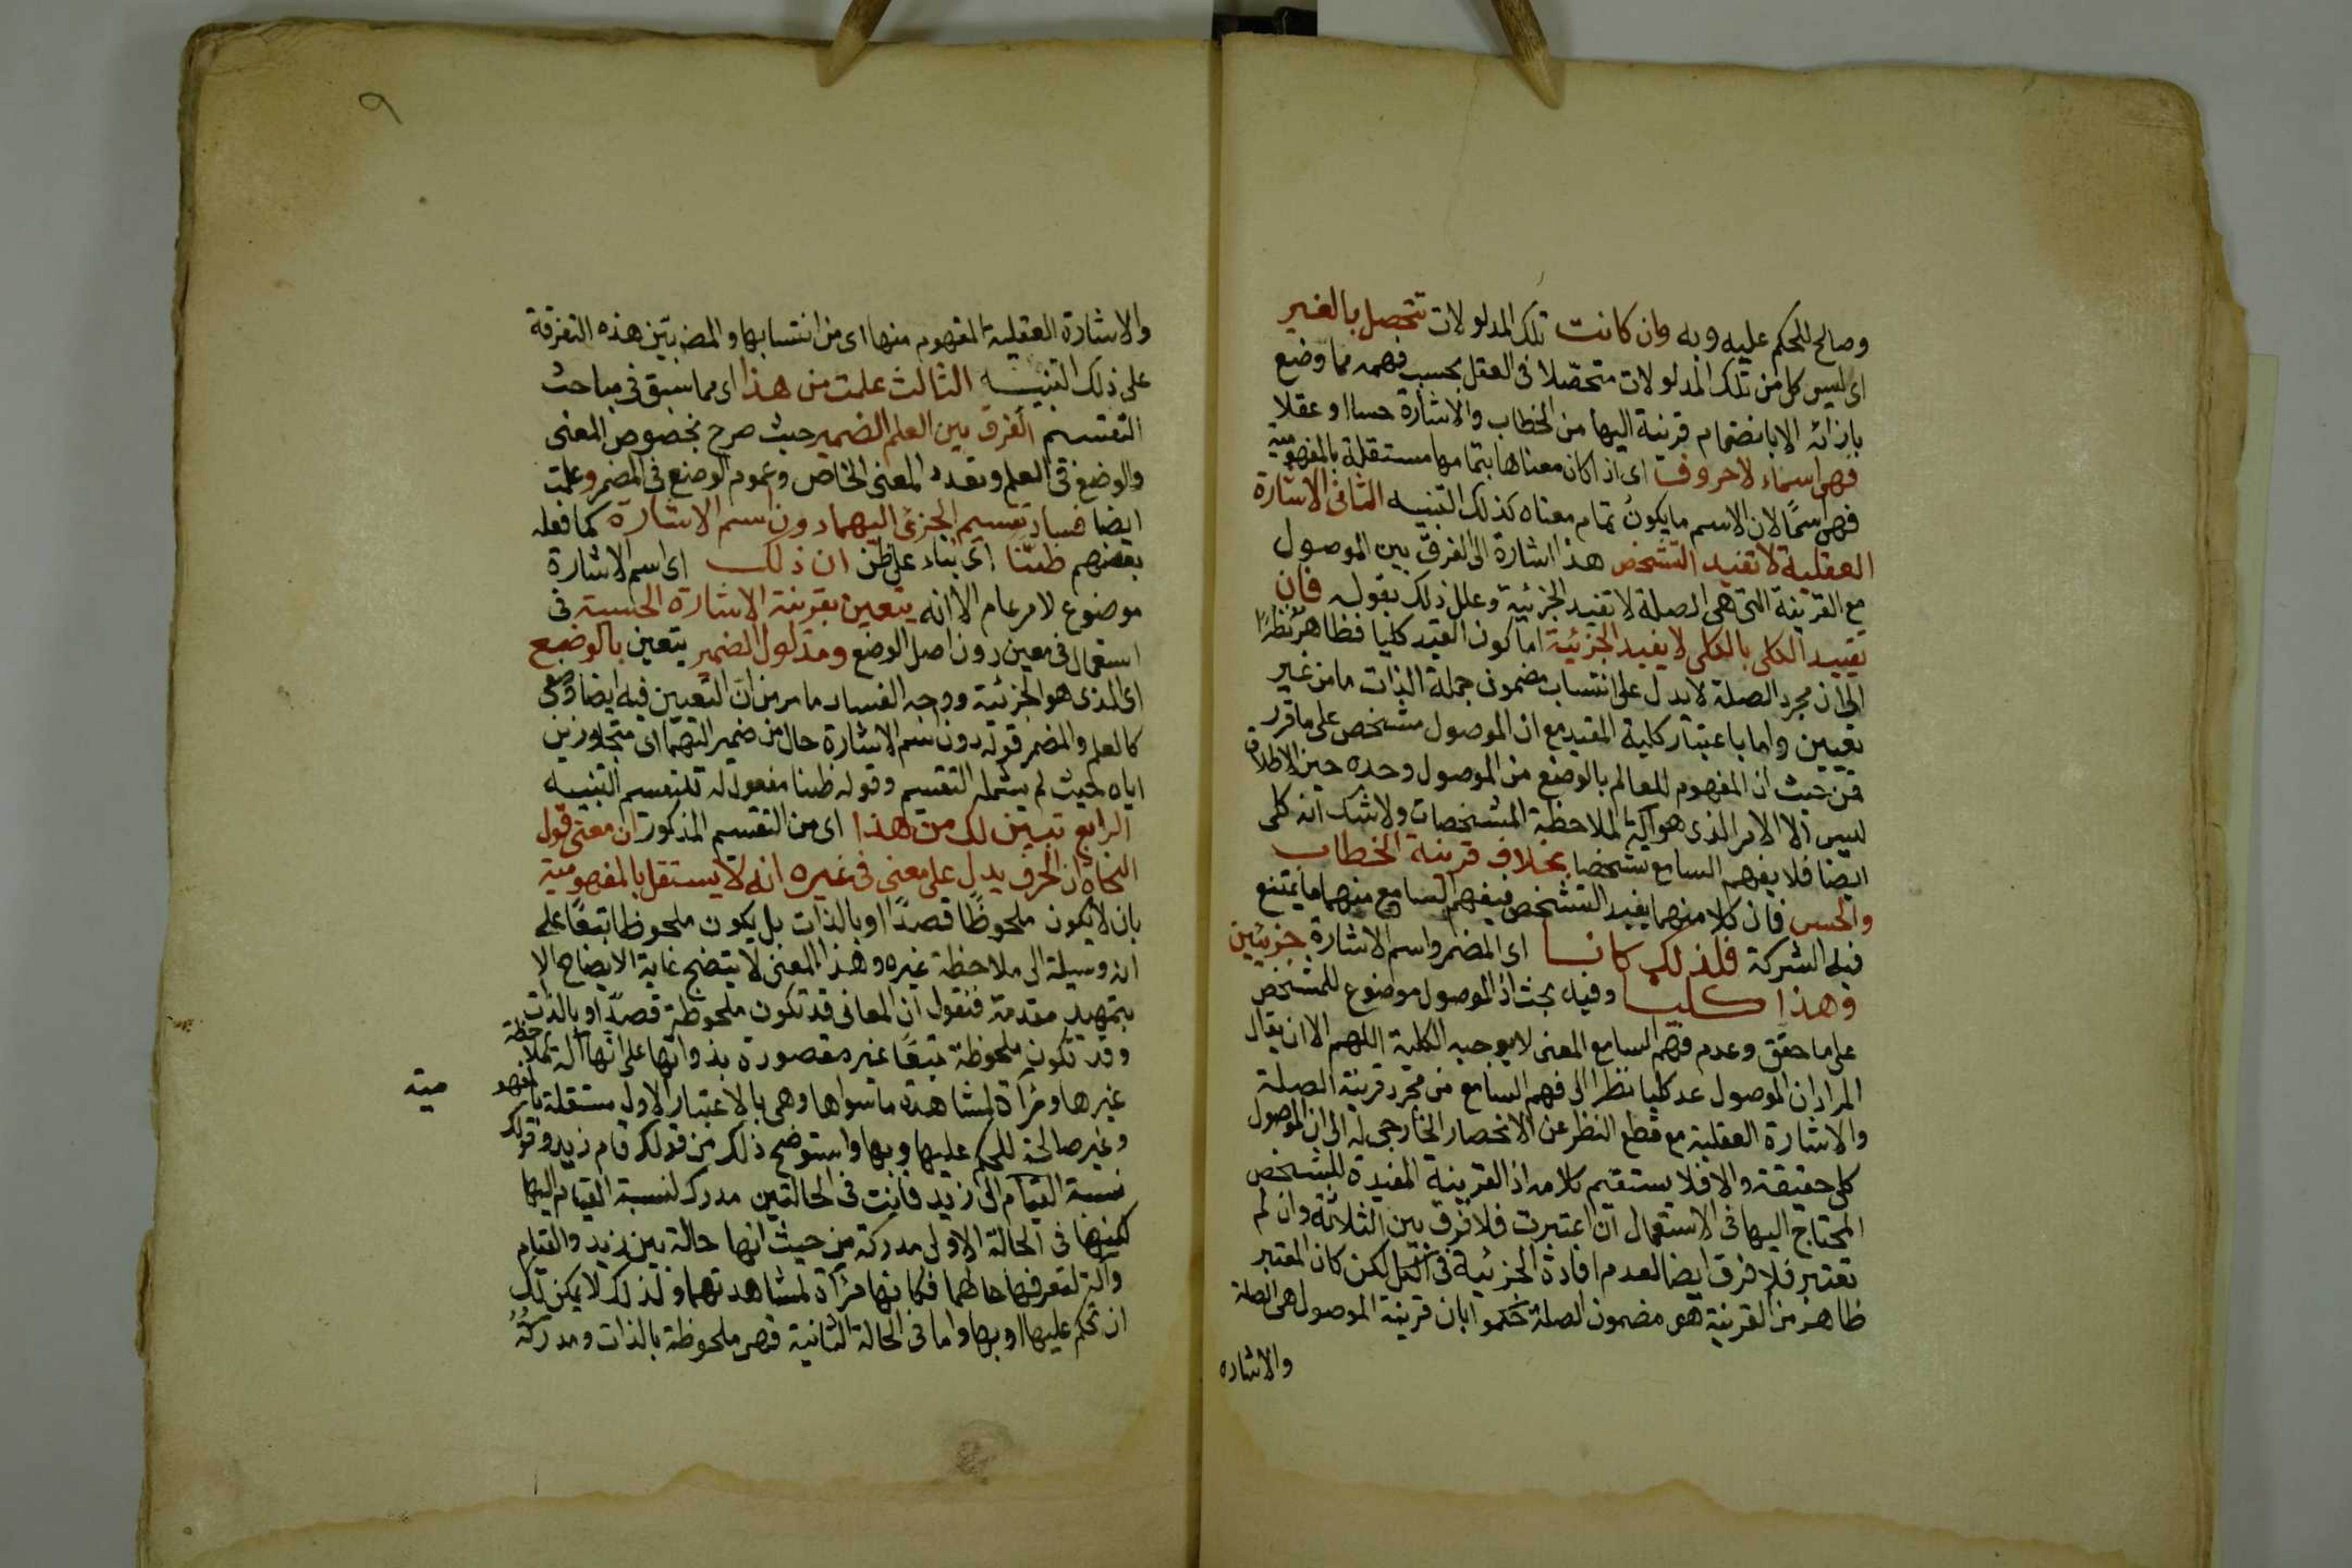 وصالح للحكم عليه وبه وان كانت تلك المدلولات تتحصل بالغير
اى ليس كل من تلك المدلولات متحصلا فى العقل بحسب فهمه مما وضع
بازائه الا بانضمام قرينة اليها من الخطاب والاشارة حسا او عقلا
فهى اسماء لا حروف اى اذا كان معناها بتمامها مستقلة بالمفهومية
فهى اسما لان الاسم ما يكون تمام معناه كذلك التنبيه الثانى الاشارة
العقلية لا تفيد التشخص هذا اشارة الى الفرق بين الموصول
مع القرينة التى هى الصلة لا تفيد الجزئية وعلل ذلك بقوله فان
تقييد الكلى بالكلى لا يفيد الجزئية اما كون القيد كليا فظاهر نظرا
الى ان مجرد الصلة لا يدل على انتساب مضمون جملة الذات ما من غير
تعيين واما باعتبار كلية المقيد مع ان الموصول مشخص على ما قرر
فمن حيث ان المفهوم للعالم بالوضع من الموصول وحده حين الاطلاق
ليس الا الامر الذى هو آلة لملاحظة المشخصات ولا شك انه كلى
ايضا فلا يفهم السامع مشخصا بخلاف قرينة الخطاب
والحس فان كلا منهما يفيد التشخص فيفهم السامع منهما ما يمتنع
فيه الشركة فلذلك كانا اى المضمر واسم الاشارة جزئيين
وهذا كليا وفيه بحث اذ الموصول موضوع للمشخص
على ما حقق وعدم فهم السامع المعنى لا يوجبه الكلية اللهم الا ان يقال
المراد ان الموصول عد كليا نظرا الى فهم السامع من مجرد قرينة الصلة
والاشارة العقلية مع قطع النظر عن الانحصار الخارجى له الى ان الموصول
كلى حقيقة والا فلا يستقيم كلامه اذ القرينة المفيدة للتشخص
المحتاج اليها فى الاستعمال ان اعتبرت فلا فرق بين الثلاثة وان لم
تعتبر فلا فرق ايضا لعدم افادة الجزئية فى الكل لكن كان المعتبر
ظاهر من القرينة هو مضمون الصلة حكموا بان قرينة الموصول هى الصلة
والاشاره
٩
والاشارة العقلية المفهوم منها اى من انتسابها والمص بيّن هذه التفرقة
على ذلك التنبيه الثالث علمت من هذا اى مما سبق فى مباحث
التقسيم الفرق بين العلم الضمير حيث صرح بخصوص المعنى
والوضع فى العلم وتعدد المعنى الخاص وعموم الوضع فى المضمر وعلمت
ايضا فساد تقسيم الجزئى اليهما دون اسم الاشارة كما فعله
بعضهم ظنّا اى بناء على ظن ان ذلك اى اسم الاشارة
موضوع لامر عام الا انه يتعين بقرينة الاشارة الحسية فى
استعمال فى معين دون اصل الوضع ومدلول الضمير يتعين بالوضع
اى الذى هو الجزئية ووجه الفساد ما مر من ان التعيين فيه ايضا وضعى
كالعلم والمضمر قوله دون اسم الاشارة حال من ضمير اليهما اى متجاوزين
اياه بحيث لم يشمله التقسيم وقوله ظنا مفعول له لتقسيم التنبيه
الرابع تبين لك من هذا اى من التقسيم المذكور ان معنى قول
النحاة ان الحرف يدل على معنى فى غيره انه لا يستقل بالمفهومية
بان لا يكون ملحوظا قصدا او بالذات بل يكون ملحوظا تبعا على
انه وسيلة الى ملاحظة غيره وهذا المعنى لا يتضح غاية الايضاح الا
بتمهيد مقدمة فنقول ان المعانى قد تكون ملحوظة قصدا او بالذات
وقد تكون ملحوظة تبعا غير مقصورة بذواتها على انها آلة لملاحظة
غيرها ومرآة لمشاهدة ما سواها وهى بالاعتبار الاول مستقلة بالمفهو
مية
وغير صالحة للحكم عليها وبها واستوضح ذلك من قولك قام زيد وقولك
نسبة القيام الى زيد فانت فى الحالتين مدرك لنسبة القيام اليها
لكنها فى الحالة الاولى مدركة من حيث انها حالة بين زيد والقيام
وآلة لتعرف حالهما فكانها مرآة لمشاهدتهما ولذلك لا يمكن لك
ان تحكم عليها او بها واما فى الحالة الثانية فهى ملحوظة بالذات ومدركة